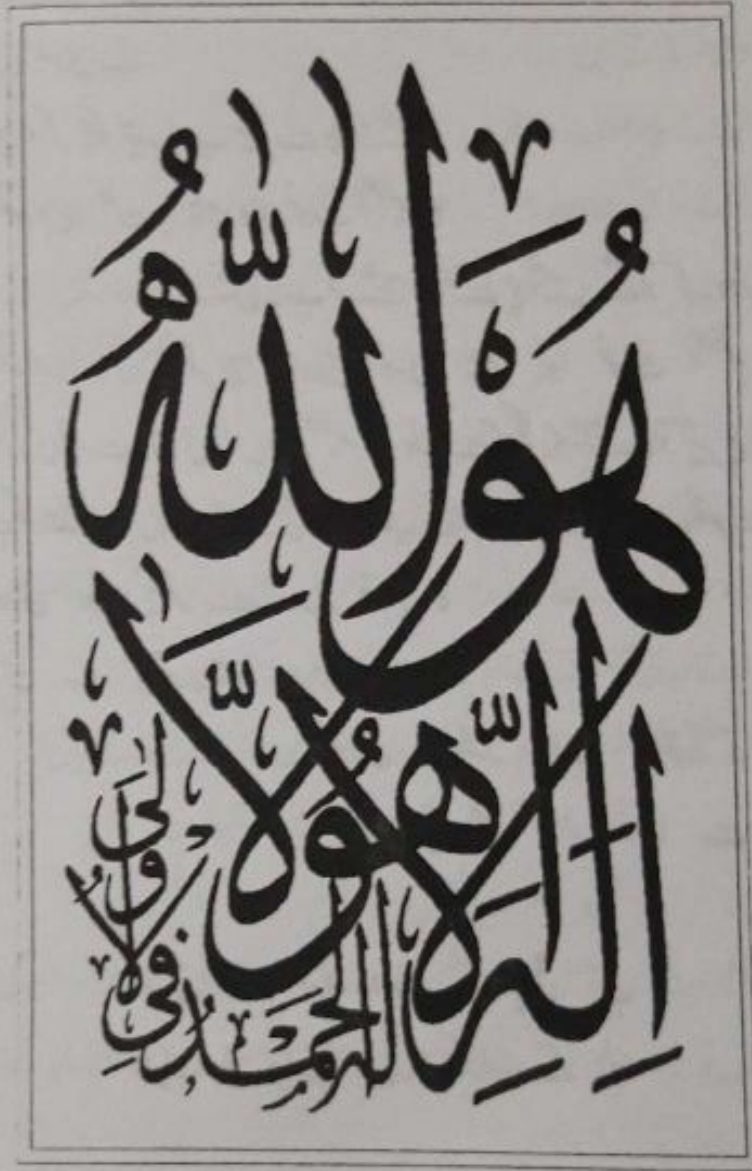 هُوَ اللّٰهُ
لَا اِلٰهَ اِلَّا هُوَ
لَهُ الحَمْدُ فِي الاُولَى